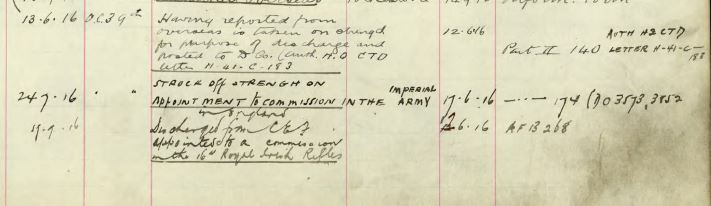 13-6-16 O.C. 39th Having reported from
overseas is taken on strength 12-6-16 AUTH H2 CTD
for purpose of discharge and Part II 140 LETTER H-41-C-
posted to D Co. (Auth. H.Q CTD 183
letter H-41-C-183
STRUCK Off STRENGH ON
24-7-16 " " APPOINTMENT to COMMISSION IN THE IMPERIAL ARMY 17-6-16 174 (D) 03573,3852
in England
Discharged from C.E.F. 6-16 AF B 268
appointed to a commission
in the 16th Royal Irish Rifles